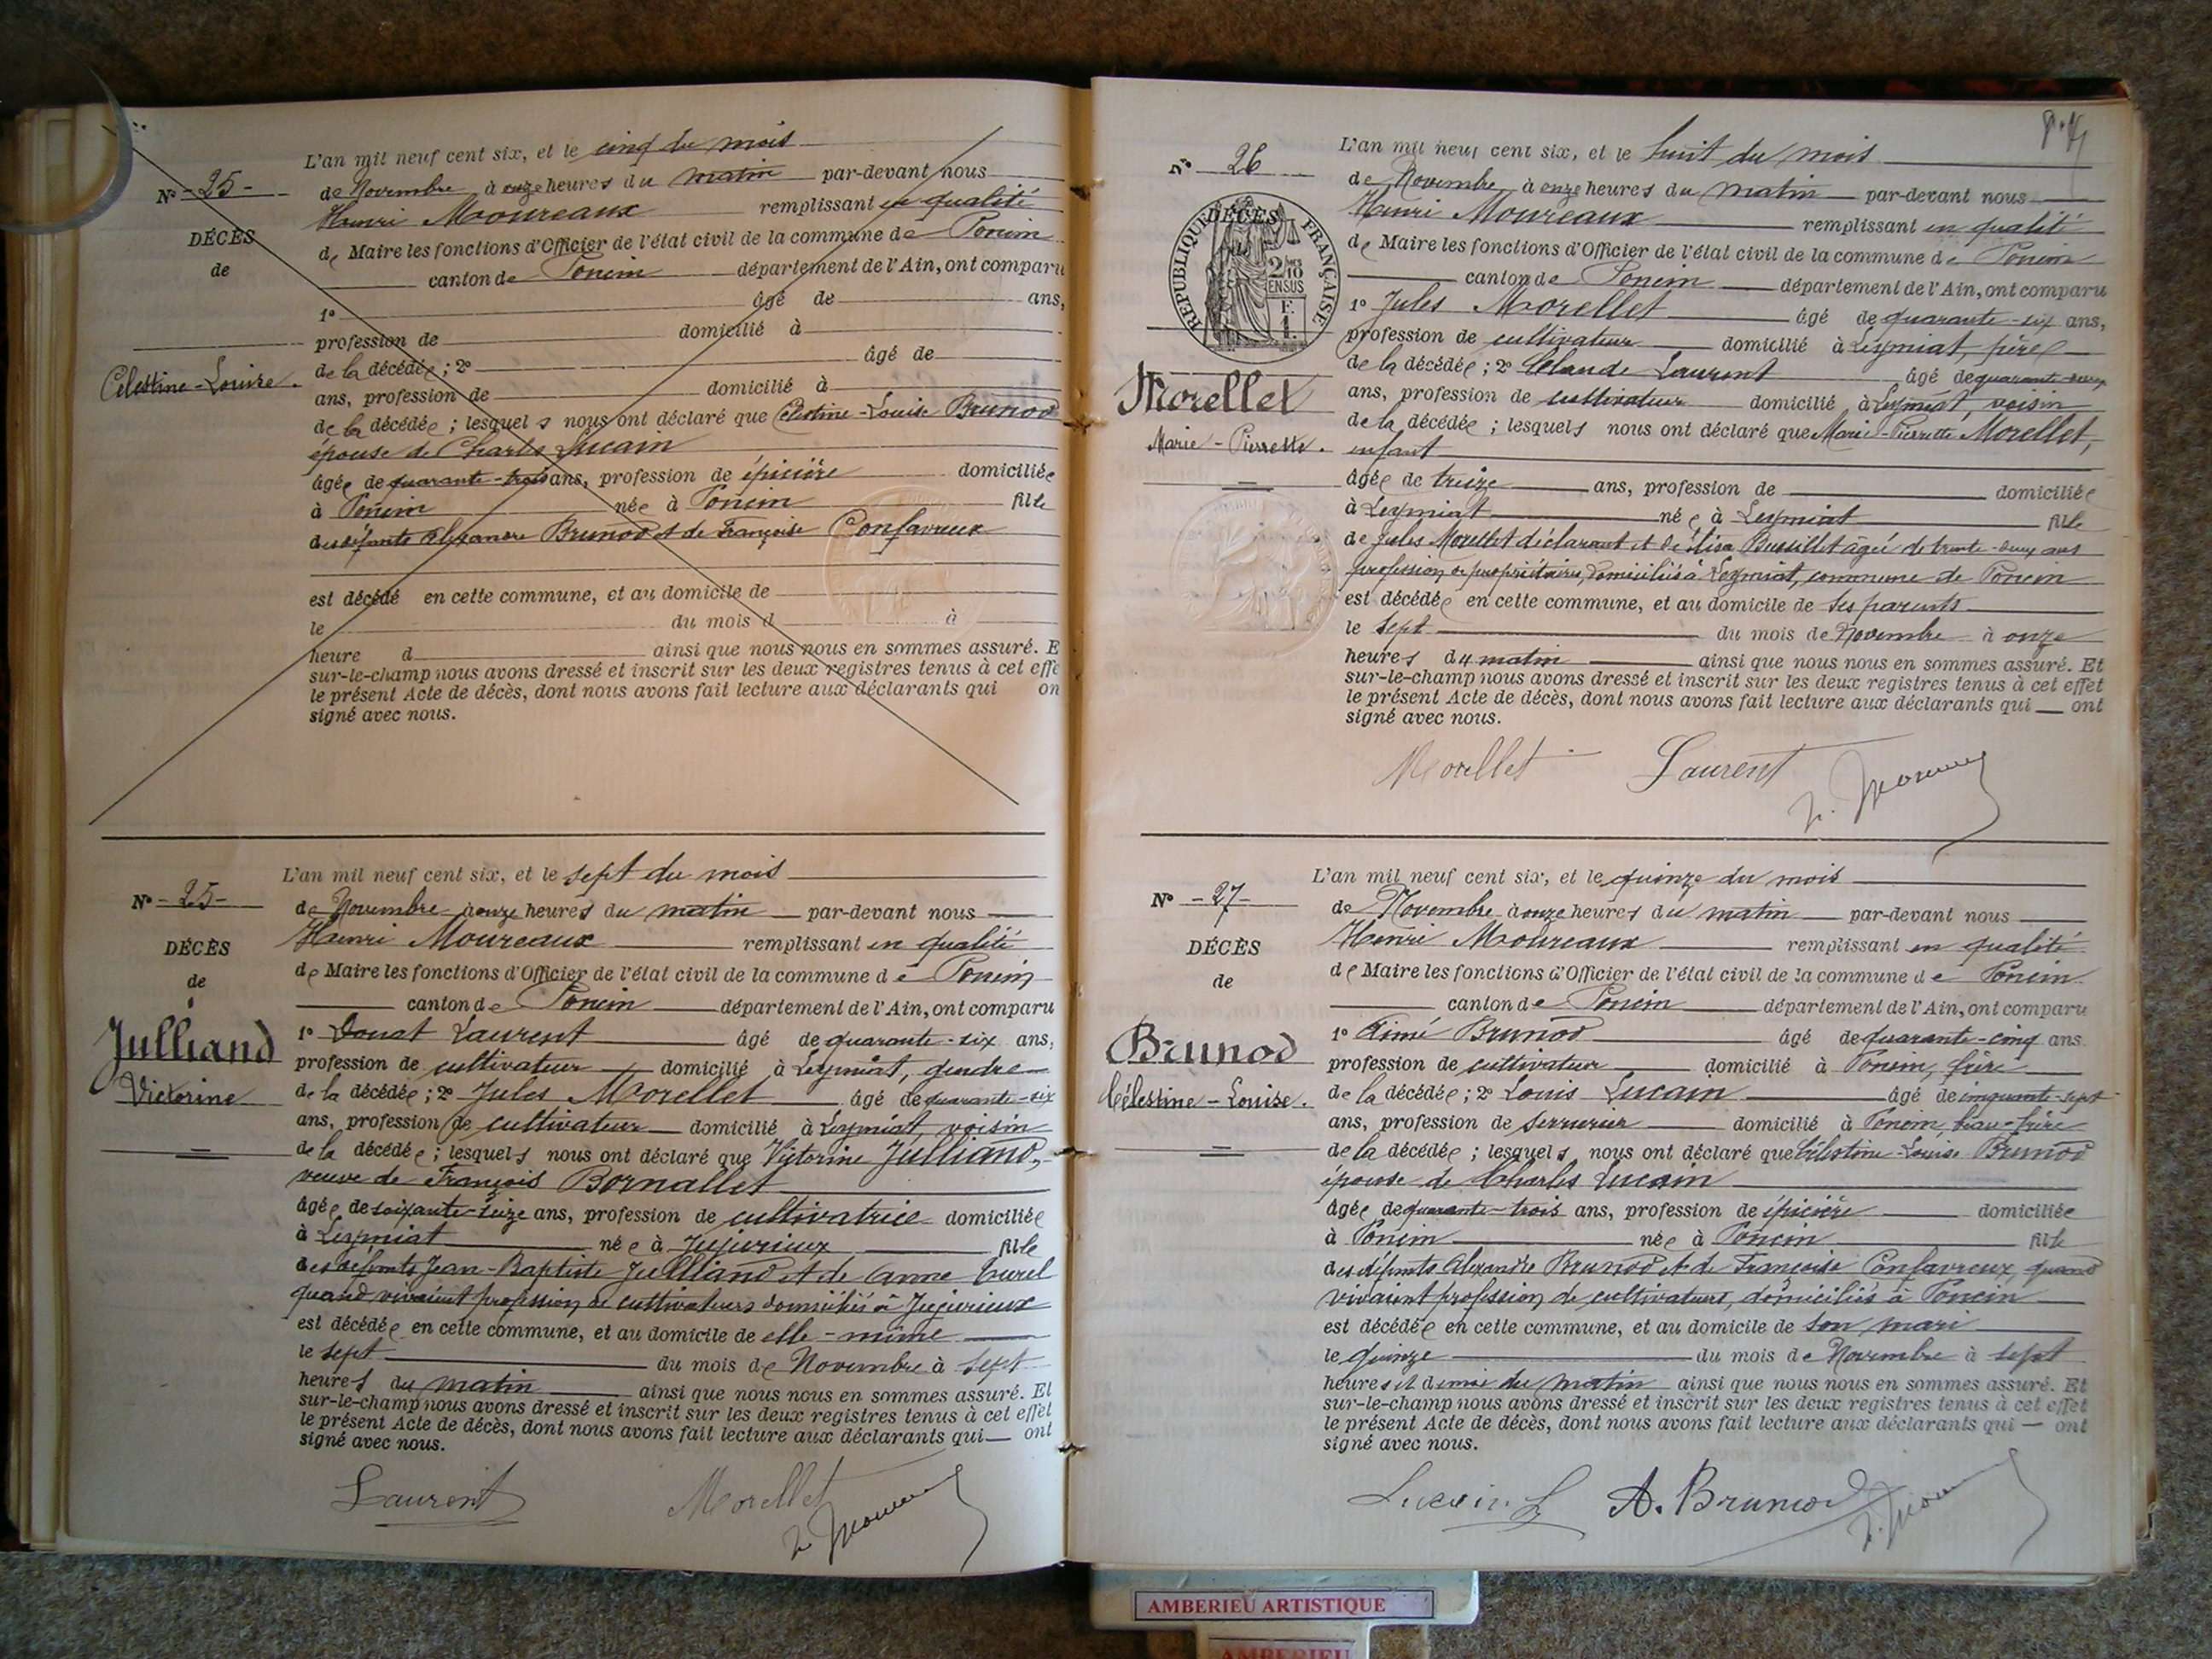 N° - 25 -
DÉCÈS
de
Célestine - Louise.
L'an mil neuf cent six, et le cinq du mois
de Novembre à onze heures du matin par-devant nous
Henri Moureaux remplissant en qualité
de Maire les fonctions d'Officier de l'état civil de la commune de Poncin
canton de Poncin département de l'Ain, ont comparu
1° âgé de ans,
profession de domicilié à
de la décédée ; 2° âgé de
ans, profession de domicilié à
de la décédée ; lesquels nous ont déclaré que Célestine - Louise Brunod
épouse de Charles Lucain
âgée de quarante-trois ans, profession de épicière domiciliée
à Poncin née à Poncin fille
des défunts Alexandre Brunod et de Françoise Confavreux
est décédé en cette commune, et au domicile de
le du mois d à
heure d ainsi que nous nous en sommes assuré. E
sur-le-champ nous avons dressé et inscrit sur les deux registres tenus à cet effe
le présent Acte de décès, dont nous avons fait lecture aux déclarants qui on
signé avec nous.
N° - 25 -
DÉCÈS
de
Julliand
Victorine
L'an mil neuf cent six, et le sept du mois
de Novembre à onze heures du matin par-devant nous
Henri Moureaux remplissant en qualité
de Maire les fonctions d'Officier de l'état civil de la commune de Poncin
canton de Poncin département de l'Ain, ont comparu
1° Donat Laurent âgé de quarante-six ans,
profession de cultivateur domicilié à Leymiat, gendre
de la décédée ; 2° Jules Morellet âgé de quarante-six
ans, profession de cultivateur domicilié à Leymiat, voisin
de la décédée ; lesquels nous ont déclaré que Victorine Julliand,
veuve de François Bornallet
âgée de soixante-seize ans, profession de cultivatrice domiciliée
à Leymiat née à Jujurieux fille
des défunts Jean-Baptiste Julliand et de Anne Curel
quand vivaient profession de cultivateurs domiciliés à Jujurieux
est décédée en cette commune, et au domicile de elle-même
le sept du mois de Novembre à sept
heures du matin ainsi que nous nous en sommes assuré. Et
sur-le-champ nous avons dressé et inscrit sur les deux registres tenus à cet effet
le présent Acte de décès, dont nous avons fait lecture aux déclarants qui ont
signé avec nous.
Laurent Morellet
N° 26
DÉCÈS
RÉPUBLIQUE FRANÇAISE
2/10 EN SUS
F. 1.
Morellet
Marie - Pierrette.
L'an mil neuf cent six, et le huit du mois
de Novembre à onze heures du matin par-devant nous
Henri Moureaux remplissant en qualité
de Maire les fonctions d'Officier de l'état civil de la commune de Poncin
canton de Poncin département de l'Ain, ont comparu
1° Jules Morellet âgé de quarante-six ans,
profession de cultivateur domicilié à Leymiat, père
de la décédée ; 2° Claude Laurent âgé de quarante
ans, profession de cultivateur domicilié à Leymiat, voisin
de la décédée ; lesquels nous ont déclaré que Marie-Pierrette Morellet,
enfant
âgée de treize ans, profession de domiciliée
à Leymiat née à Leymiat fille
de Jules Morellet déclarant et de Elisa Bussillet âgée de trente-deux ans
profession de propriétaires, domiciliés à Leymiat, commune de Poncin
est décédée en cette commune, et au domicile de ses parents
le sept du mois de Novembre à onze
heures du matin ainsi que nous nous en sommes assuré. Et
sur-le-champ nous avons dressé et inscrit sur les deux registres tenus à cet effet
le présent Acte de décès, dont nous avons fait lecture aux déclarants qui ont
signé avec nous.
Morellet Laurent
N° - 27 -
DÉCÈS
de
Brunod
Célestine - Louise.
L'an mil neuf cent six, et le quinze du mois
de Novembre à onze heures du matin par-devant nous
Henri Moureaux remplissant en qualité
de Maire les fonctions d'Officier de l'état civil de la commune de Poncin
canton de Poncin département de l'Ain, ont comparu
1° Aimé Brunod âgé de quarante-cinq ans
profession de cultivateur domicilié à Poncin, frère
de la décédée ; 2° Louis Lucain âgé de cinquante-sept
ans, profession de serrurier domicilié à Poncin, beau-frère
de la décédée ; lesquels nous ont déclaré que Célestine-Louise Brunod
épouse de Charles Lucain
âgée de quarante-trois ans, profession de épicière domiciliée
à Poncin née à Poncin fille
des défunts Alexandre Brunod et de Françoise Confavreux, quand
vivaient profession de cultivateurs, domiciliés à Poncin
est décédée en cette commune, et au domicile de son mari
le quinze du mois de Novembre à sept
heures et demie du matin ainsi que nous nous en sommes assuré. Et
sur-le-champ nous avons dressé et inscrit sur les deux registres tenus à cet effet
le présent Acte de décès, dont nous avons fait lecture aux déclarants qui ont
signé avec nous.
Lucain L A. Brunod
AMBERIEU ARTISTIQUE
AMBERIEU